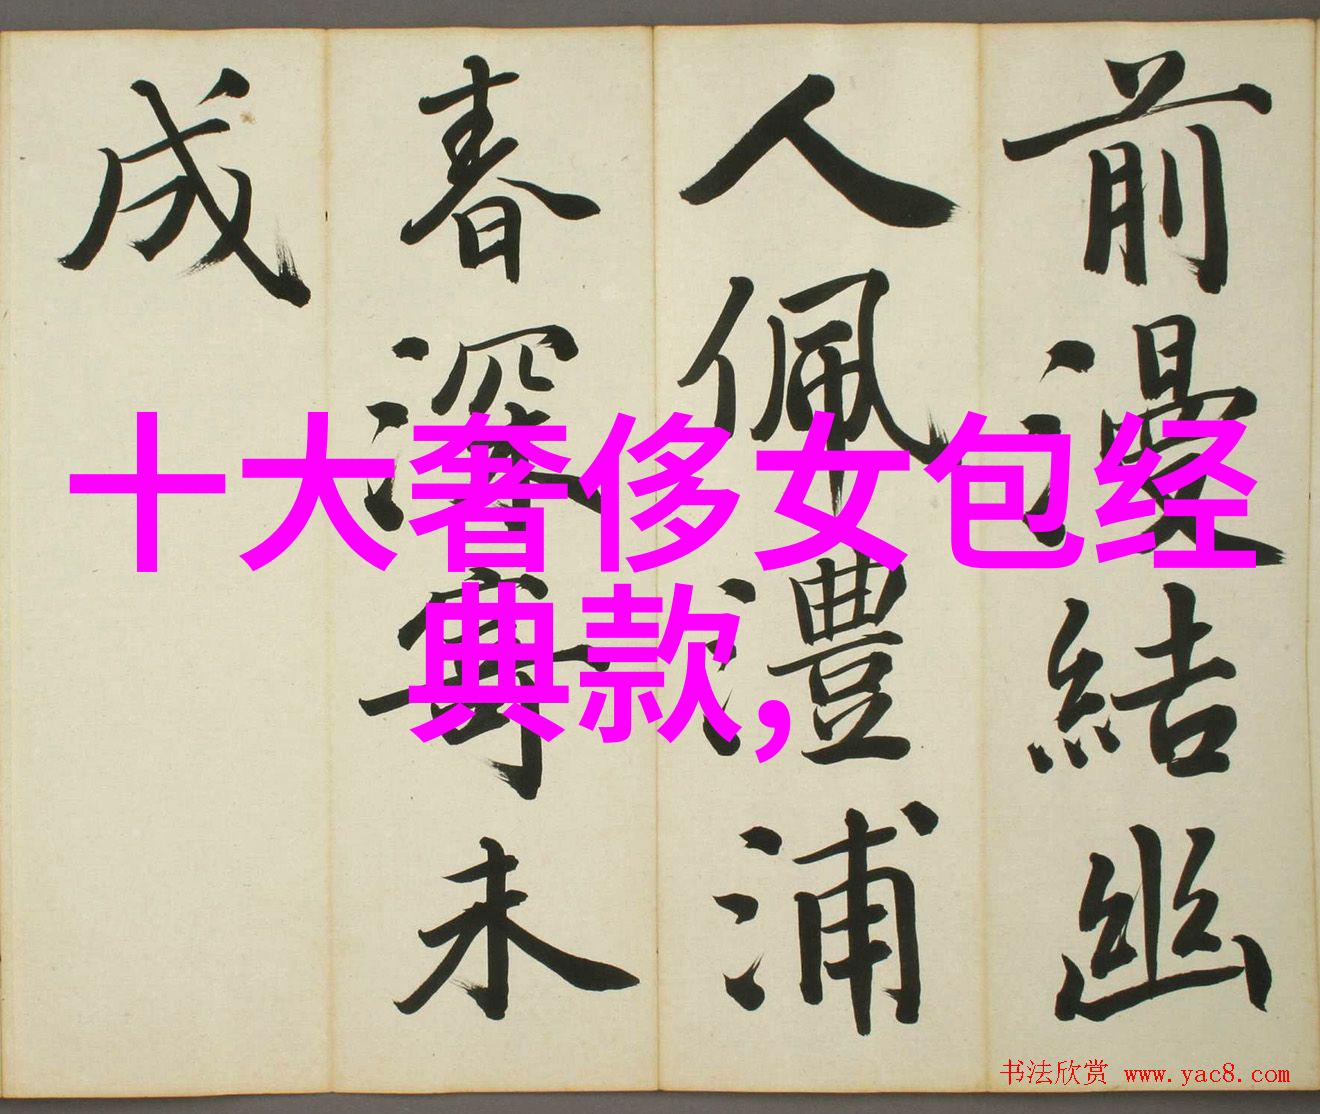 前漫結幽
人佩澧浦
春深未
成
十大奢侈女包经
典款,
书法欣赏 www.yac8.com